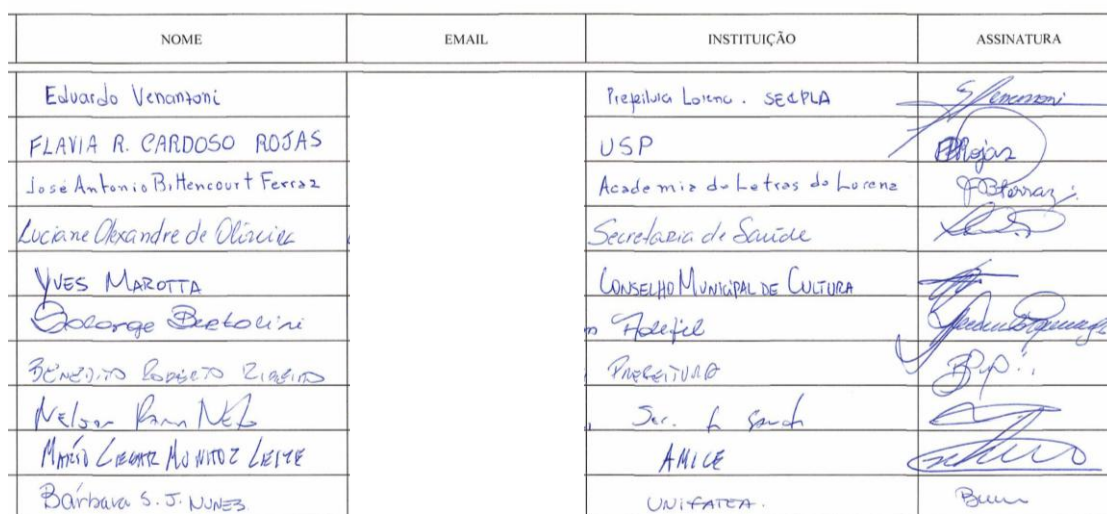 NOME EMAIL INSTITUIÇÃO ASSINATURA
Eduardo Venantoni Prefeitura Lorena. SECPLA
FLAVIA R. CARDOSO ROJAS USP FRojas
José Antonio Bittencourt Ferraz Academia de Letras de Lorena JABFerraz
Luciane Alexandre de Oliveira Secretaria de Saúde
YVES MAROTTA CONSELHO MUNICIPAL DE CULTURA
Solange Bertolini
BENEDITO ROBERTO RIBEIRO PREFEITURA
Nelson Neto Sec. Saúde
MARIO LEITE AMICE
Bárbara S. J. NUNES. UNIFATEA.